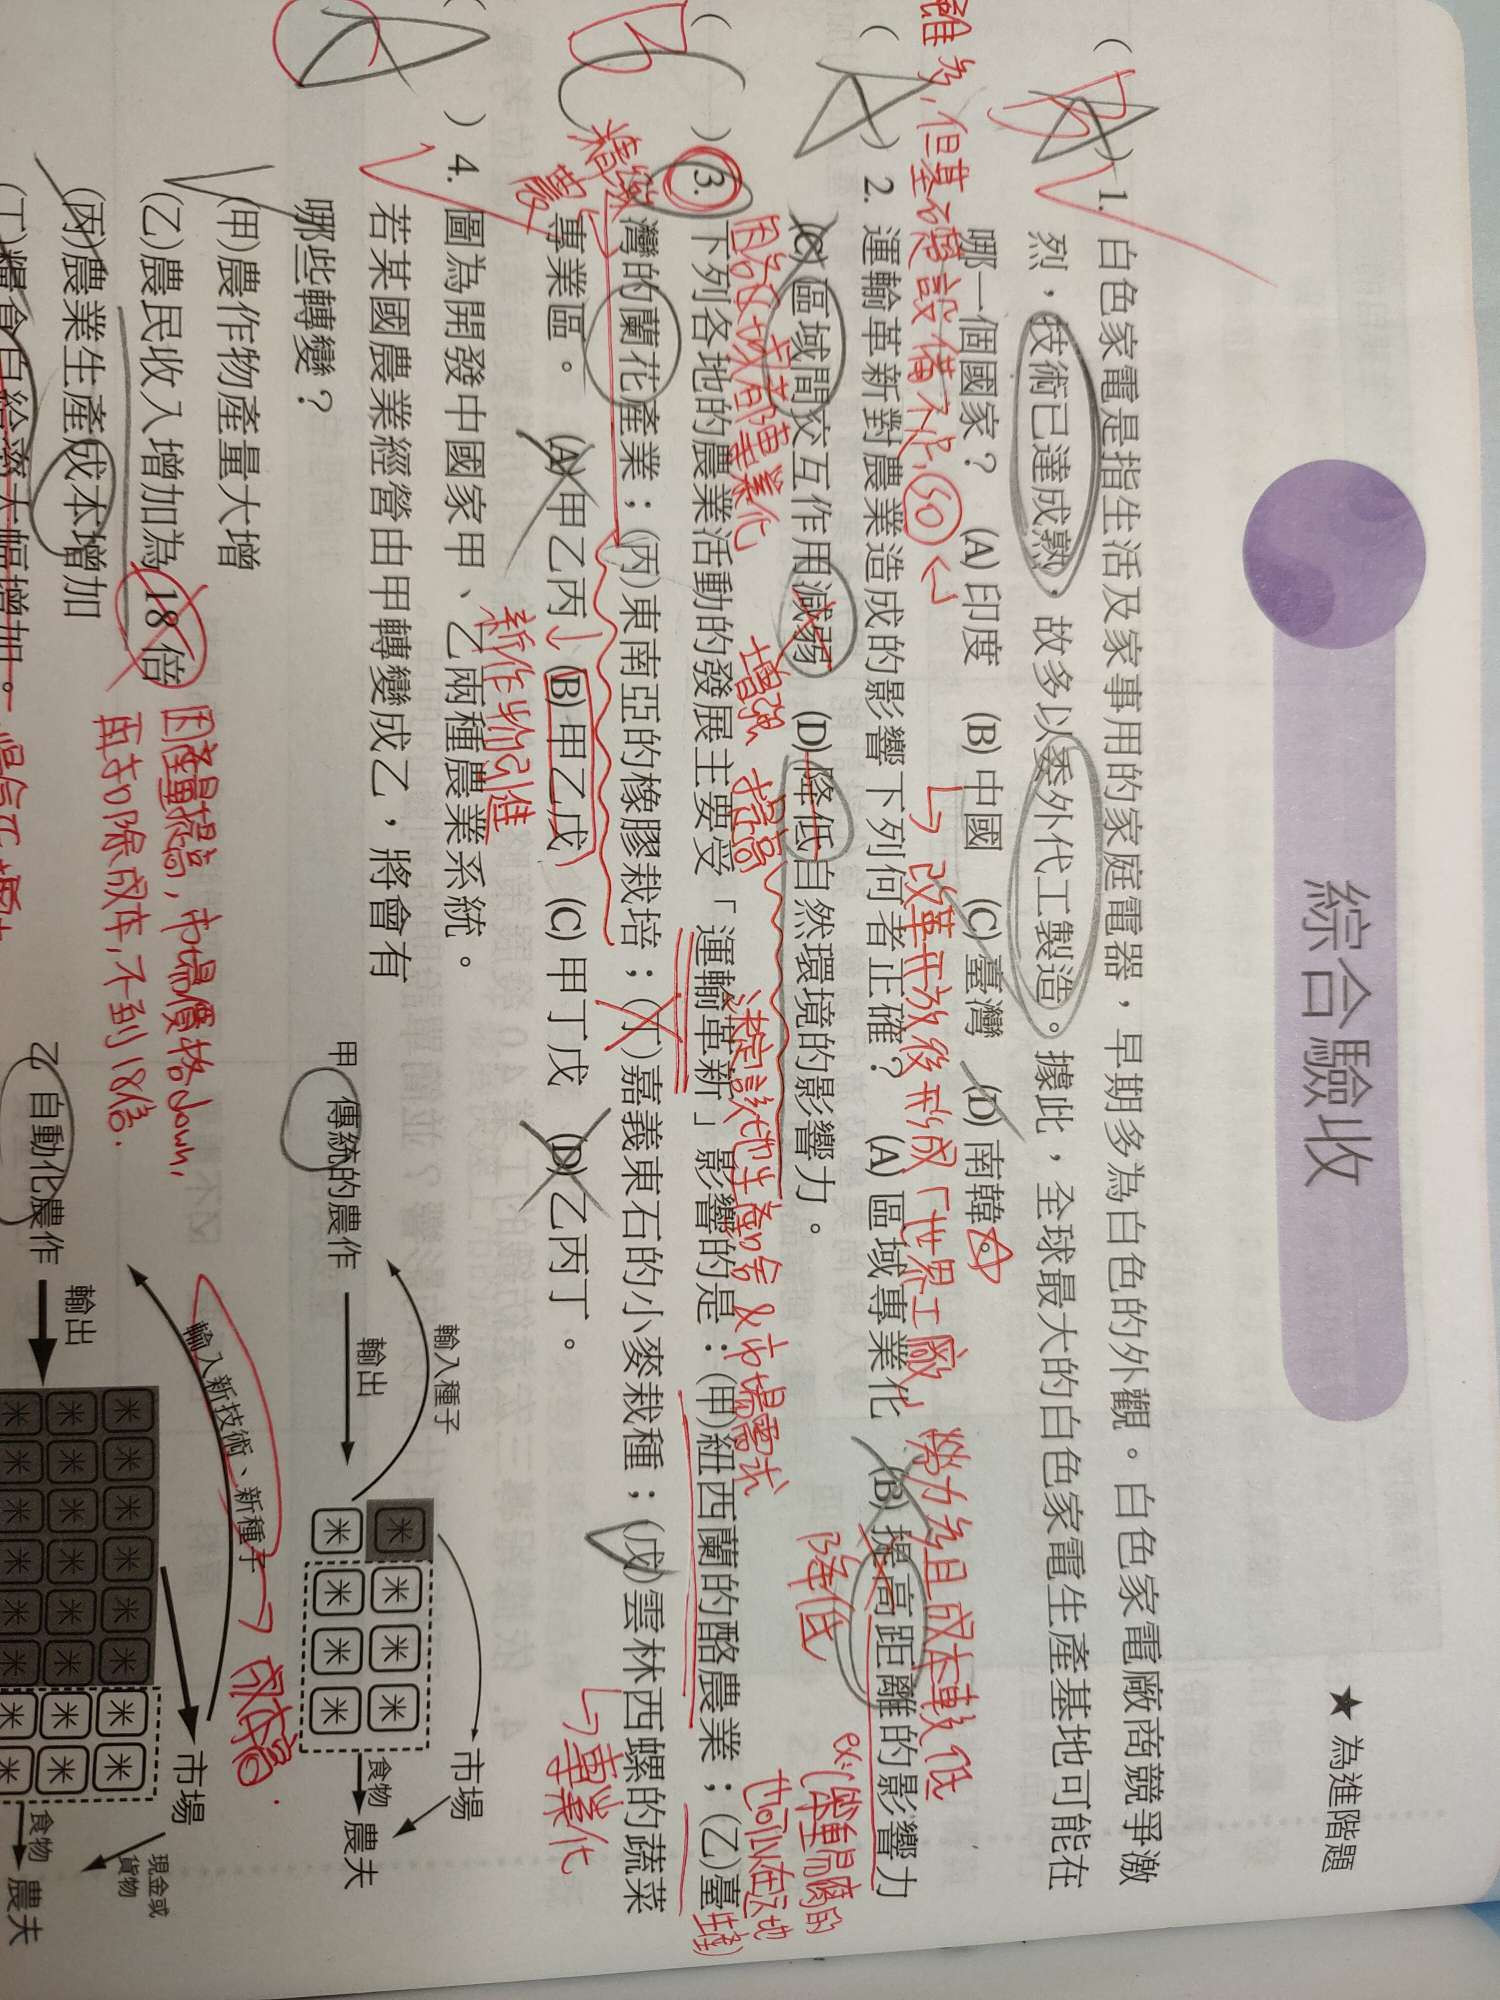 綜合驗收
★為進階題
( )1. 白色家電是指生活及家事用的家庭電器，早期多為白色的外觀。白色家電廠商競爭激
烈，技術已達成熟，故多以委外代工製造。據此，全球最大的白色家電生產基地可能在
哪一個國家？ (A)印度 (B)中國 (C)臺灣 (D)南韓。
雖多，但基礎設備不足, so
↳ 改革开放後形成「世界工廠」 勞力多且成本較低
( )2. 運輸革新對農業造成的影響下列何者正確？ (A)區域專業化 (B)提高距離的影響力
(C)區域間交互作用減弱 (D)降低自然環境的影響力。
降低
增強
提高
ex: 容易腐的
也可以在這地
生產
因各區域專業化
決定該地生產啥&市場需求
( )3. 下列各地的農業活動的發展主要受「運輸革新」影響的是：(甲)紐西蘭的酪農業；(乙)臺
灣的蘭花產業；(丙)東南亞的橡膠栽培；(丁)嘉義東石的小麥栽種；(戊)雲林西螺的蔬菜
專業區。 (A)甲乙丙 (B)甲乙戊 (C)甲丁戊 (D)乙丙丁。
精緻
農
新作物引進
↳專業化
( )4. 圖為開發中國家甲、乙兩種農業系統。
若某國農業經營由甲轉變成乙，將會有
哪些轉變？
(甲)農作物產量大增
(乙)農民收入增加為18倍
因產量提高，市場價格down,
再扣除成本，不到18倍.
(丙)農業生產成本增加
(丁)糧食自給率大幅增加。
甲 傳統的農作
輸入種子
輸出
米 米 米 米
米 米 米 米
市場
食物
農夫
乙 自動化農作
輸入新技術、新種子
成本高.
輸出
米 米 米 米 米 米 米
米 米 米 米 米 米 米
米 米 米 米 米 米 米
市場
現金或
貨物
食物
農夫